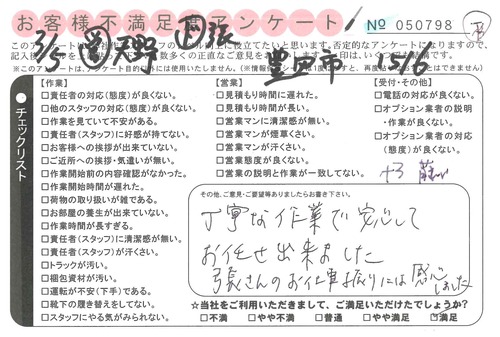 お客様不満足度アンケート
№ 050798
3/3 大野 豊田市 1516
※このアンケートは、上記目的以外には使用いたしません。
チェックリスト
【作業】
□責任者の対応(態度)が良くない。
□他のスタッフの対応(態度)が良くない。
□作業を見ていて不安がある。
□責任者(スタッフ)に好感が持てない。
□お客様への挨拶が出来ていない。
□ご近所への挨拶・気遣いが無い。
□作業開始前の内容確認がなかった。
□作業開始時間が遅れた。
□荷物の取り扱いが雑である。
□お部屋の養生が出来ていない。
□作業時間が長すぎる。
□責任者(スタッフ)に清潔感が無い。
□責任者(スタッフ)が汗くさい。
□トラックが汚い。
□梱包資材が汚い。
□運転が不安(下手)である。
□靴下の履き替えをしてない。
□スタッフにやる気がみられない。
【営業】
□見積もり時間に遅れた。
□見積もり時間が長い。
□営業マンに清潔感が無い。
□営業マンが煙草くさい。
□営業マンが汗くさい。
□営業態度が良くない。
□営業の説明と作業が一致してない。
【受付・その他】
□電話の対応が良くない。
□オプション業者の説明
・作業が良くない。
□オプション業者の対応
(態度)が良くない。
その他、ご意見・ご要望等ありましたらお書き下さい。
丁寧な作業で安心して
お任せ出来ました
弓張さんのお仕事振りには感心しました
☆当社をご利用いただきまして、ご満足いただけたでしょうか?
□不満 □やや不満 □普通 □やや満足 ☑満足